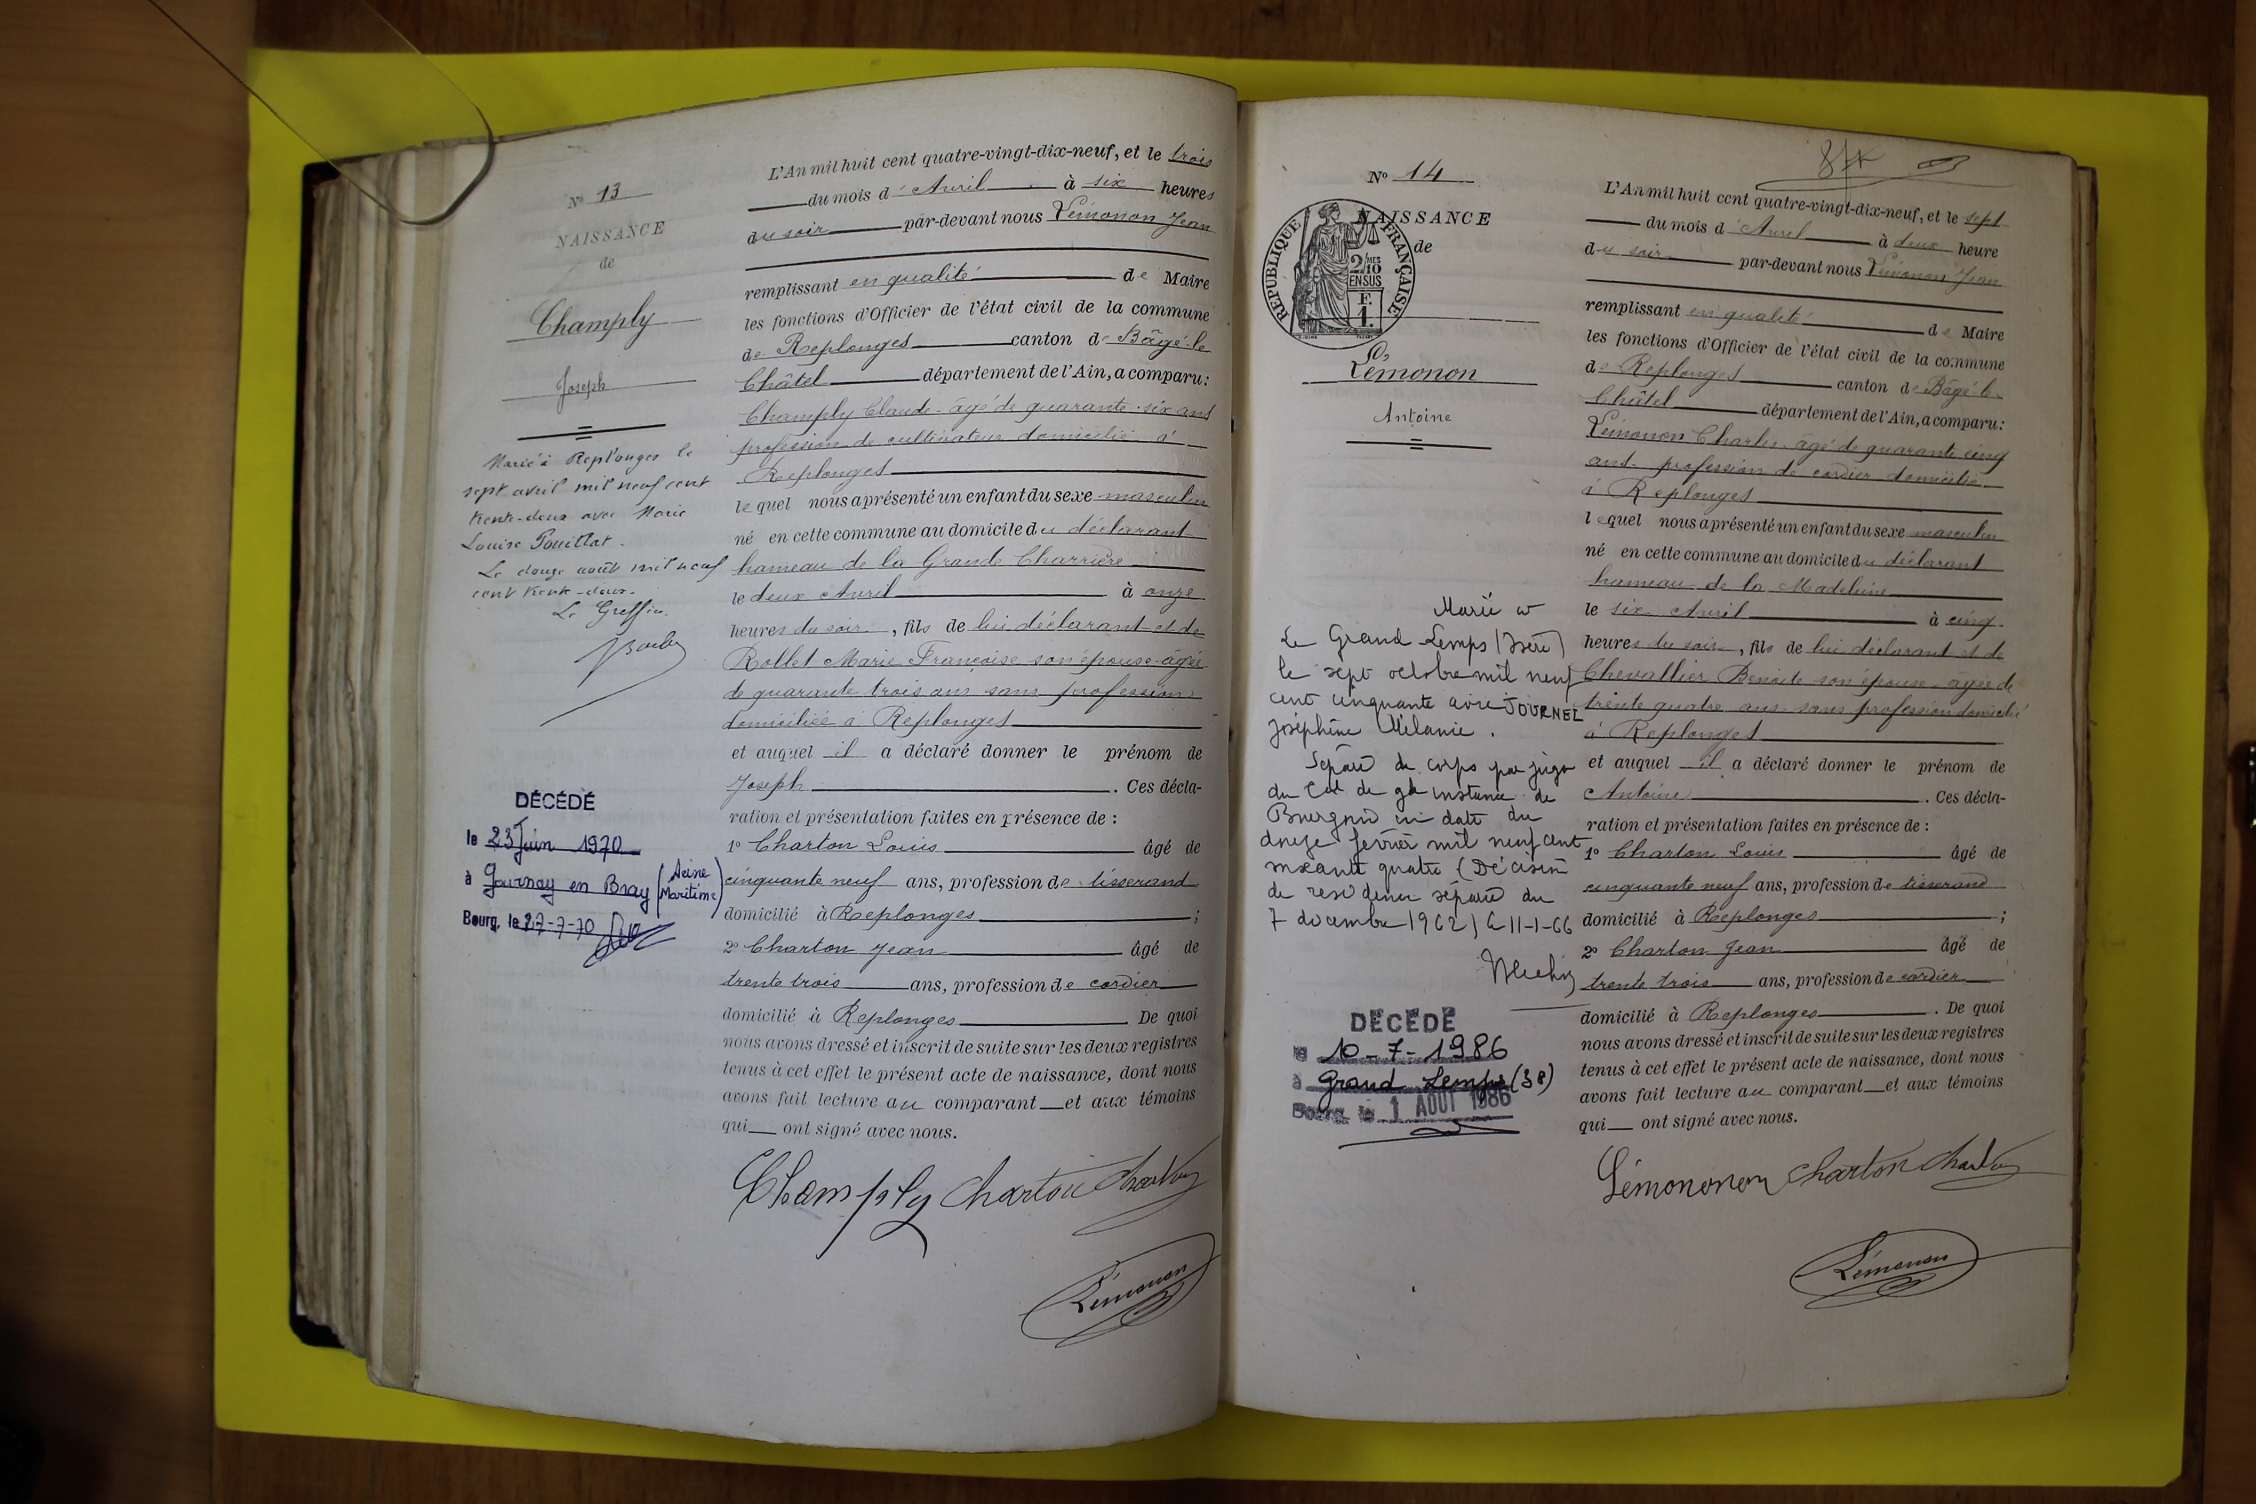 N° 13
NAISSANCE
de
Champly
Joseph
Marié à Replonges le
sept avril mil neuf cent
trente-deux avec Marie
Louise Pouillat.
Le douze août mil neuf
cent trente-deux.
Le Greffier.
DÉCÉDÉ
le 23 Juin 1970
à Gournay en Bray (Seine Maritime)
Bourg, le 27-7-70
L'An mil huit cent quatre-vingt-dix-neuf, et le trois
du mois d'Avril à six heures
du soir par-devant nous Lémonon Jean
remplissant en qualité de Maire
les fonctions d'Officier de l'état civil de la commune
de Replonges canton de Bâgé-le
Châtel département de l'Ain, a comparu:
Champly Claude âgé de quarante-six ans
profession de cultivateur domicilié à
Replonges
lequel nous a présenté un enfant du sexe masculin
né en cette commune au domicile du déclarant
hameau de la Grande Charrière
le deux Avril à onze
heures du soir, fils de lui déclarant et de
Rollet Marie Françoise son épouse âgée
de quarante trois ans sans profession
domiciliée à Replonges
et auquel il a déclaré donner le prénom de
Joseph. Ces décla-
ration et présentation faites en présence de :
1° Charton Louis âgé de
cinquante neuf ans, profession de tisserand
domicilié à Replonges ;
2° Charton Jean âgé de
trente trois ans, profession de cordier
domicilié à Replonges. De quoi
nous avons dressé et inscrit de suite sur les deux registres
tenus à cet effet le présent acte de naissance, dont nous
avons fait lecture au comparant et aux témoins
qui ont signé avec nous.
Champly Charton Charton
Lémonon
N° 14
NAISSANCE
de
RÉPUBLIQUE FRANÇAISE
2/10 MES
EN SUS
F.
1.
Lémonon
Antoine
Marié à
Le Grand Lemps (Isère)
le sept octobre mil neuf
cent cinquante avec JOURNEL
Joséphine Mélanie.
Séparé de corps par jugt
du Tal de gde instance de
Bourgoin en date du
douze février mil neuf cent
soixante quatre (Décision
de résidence séparée du
7 décembre 1962) le 11-1-66
DÉCÉDÉ
le 10-7-1986
à Grand Lemps (38)
Bourg, le 1 AOUT 1986
L'An mil huit cent quatre-vingt-dix-neuf, et le sept
du mois d'Avril à deux heure
du soir par-devant nous Lémonon Jean
remplissant en qualité de Maire
les fonctions d'Officier de l'état civil de la commune
de Replonges canton de Bâgé-le-
Châtel département de l'Ain, a comparu:
Lémonon Charles âgé de quarante cinq
ans profession de cordier domicilié
à Replonges
lequel nous a présenté un enfant du sexe masculin
né en cette commune au domicile du déclarant
hameau de la Madeleine
le six Avril à cinq
heures du soir, fils de lui déclarant et de
Chevallier Benoite son épouse âgée de
trente quatre ans sans profession domicilié
à Replonges
et auquel il a déclaré donner le prénom de
Antoine. Ces décla-
ration et présentation faites en présence de :
1° Charton Louis âgé de
cinquante neuf ans, profession de tisserand
domicilié à Replonges ;
2° Charton Jean âgé de
trente trois ans, profession de cordier
domicilié à Replonges. De quoi
nous avons dressé et inscrit de suite sur les deux registres
tenus à cet effet le présent acte de naissance, dont nous
avons fait lecture au comparant et aux témoins
qui ont signé avec nous.
Lémononon Charton Charton
Lémonon